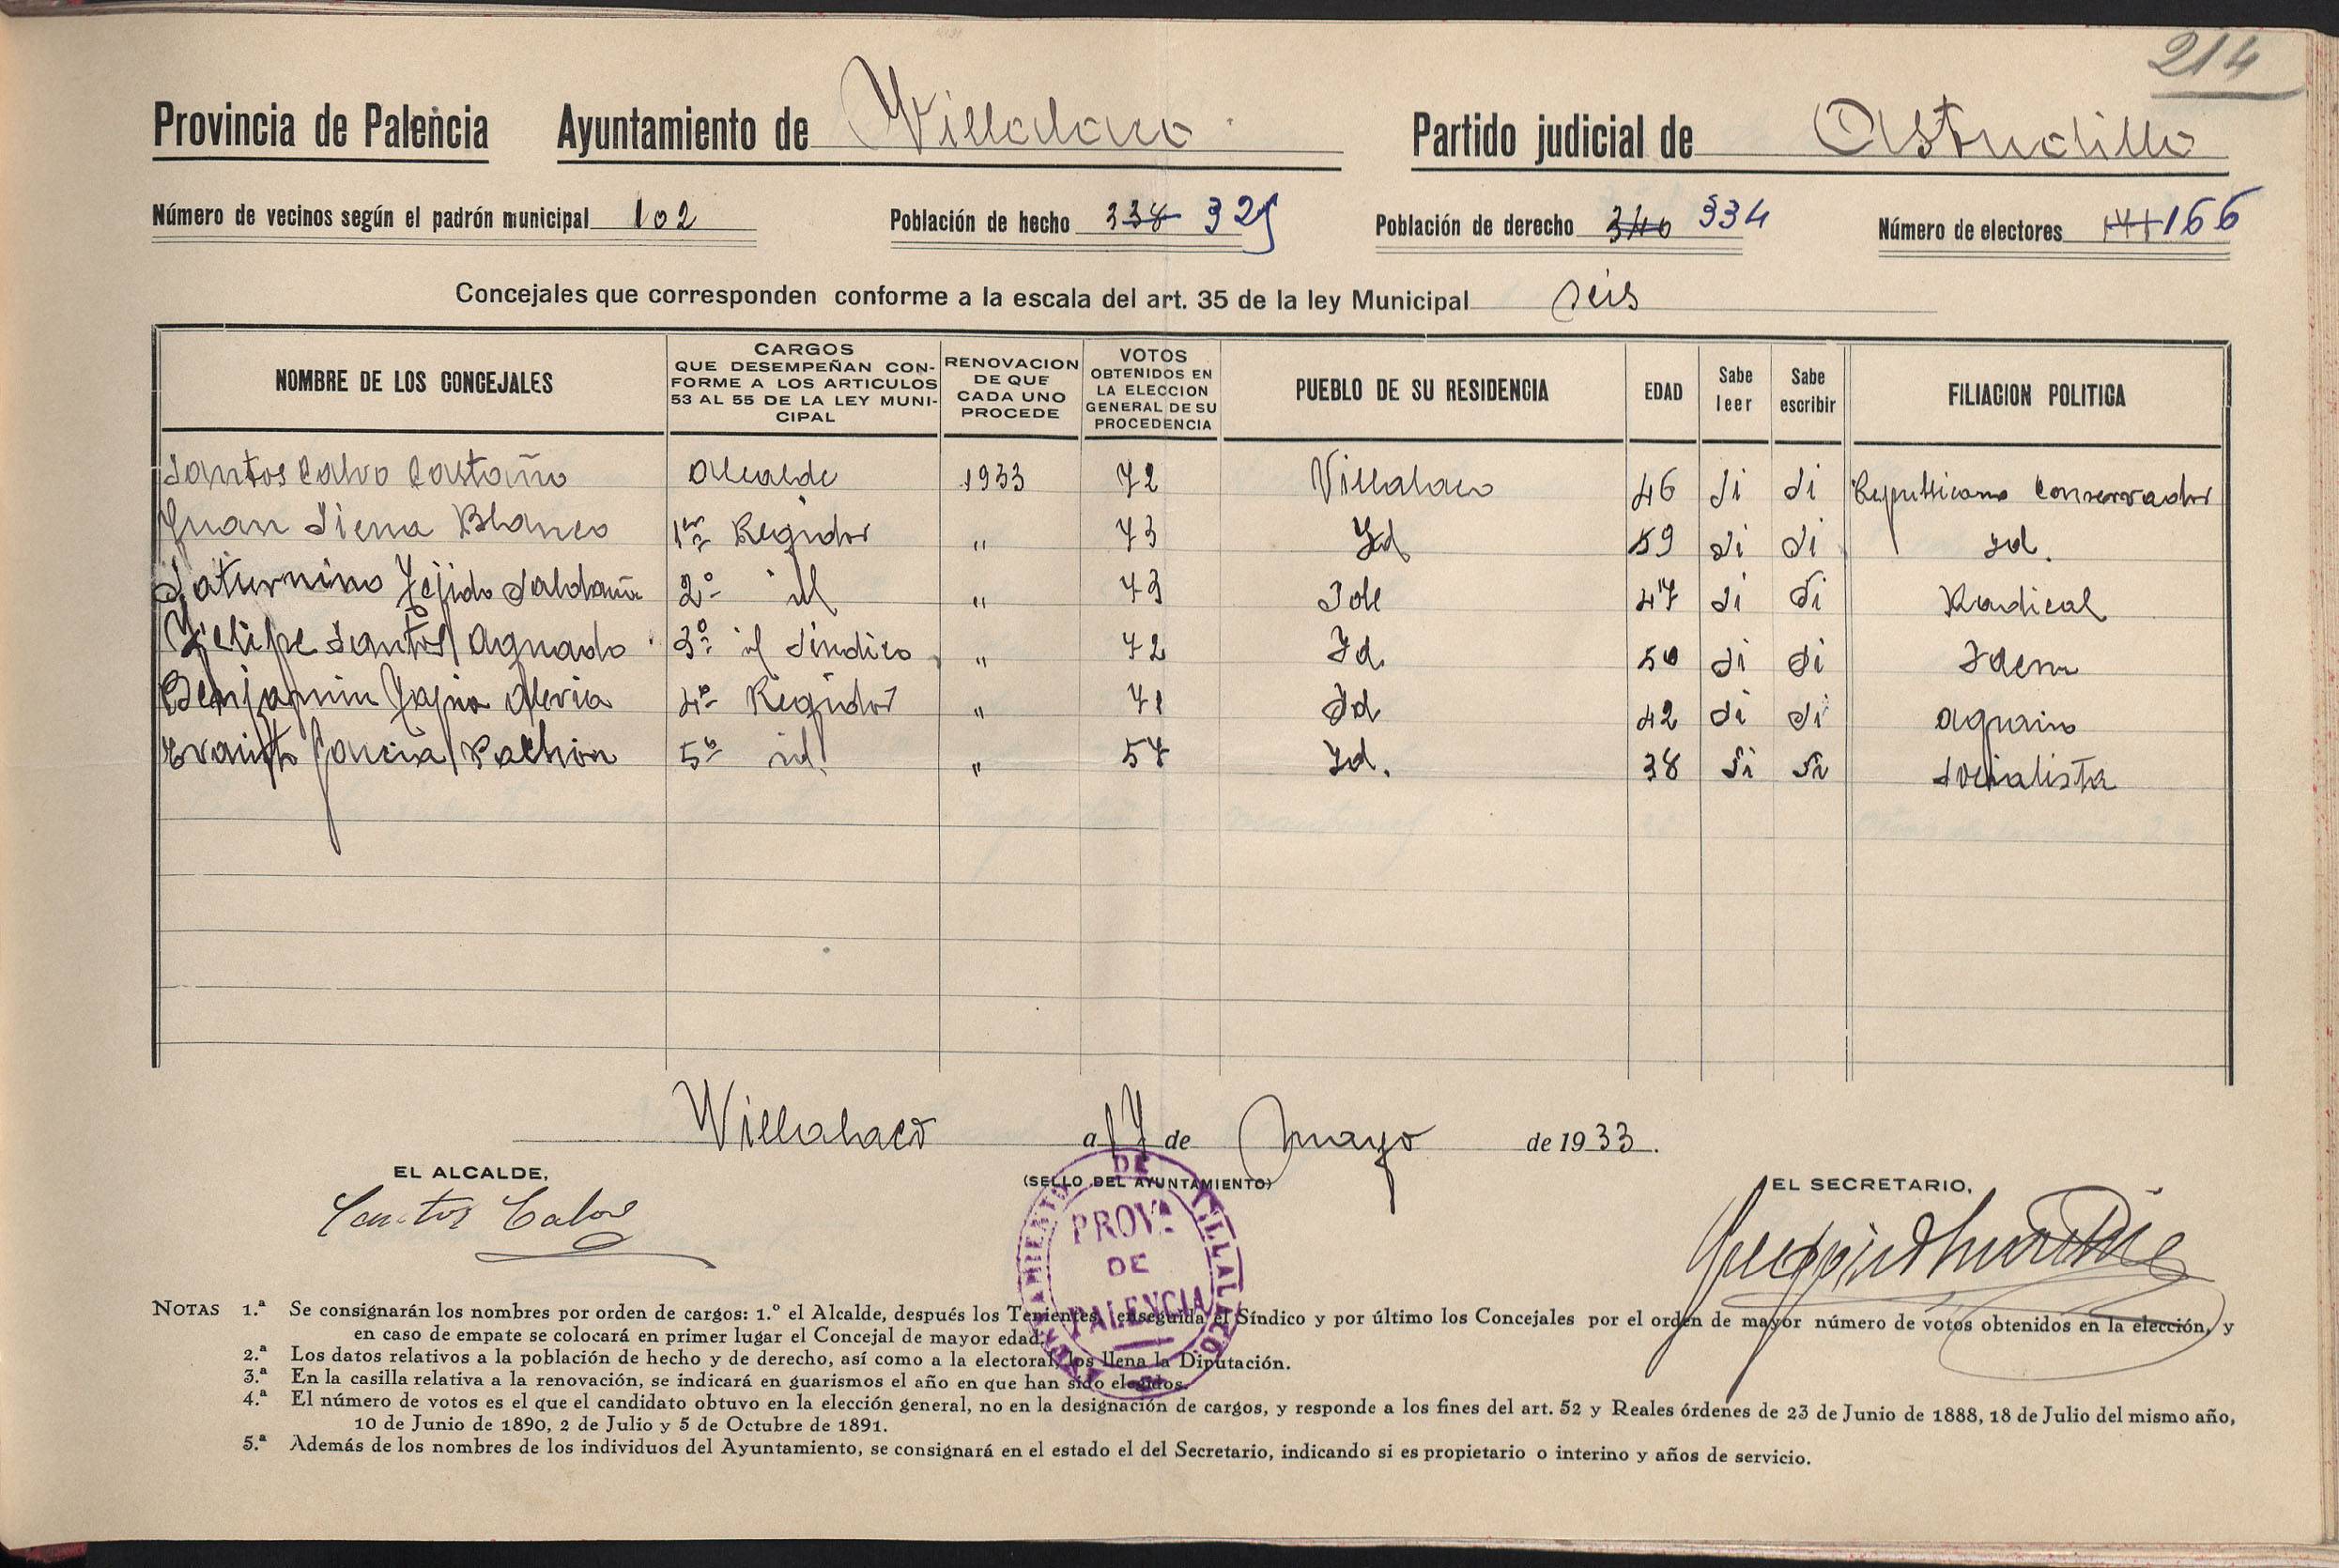 214
Provincia de Palencia Ayuntamiento de Villalaco Partido judicial de Astudillo
Número de vecinos según el padrón municipal 102 Población de hecho 338 325 Población de derecho 340 334 Número de electores 166
Concejales que corresponden conforme a la escala del art. 35 de la ley Municipal seis
NOMBRE DE LOS CONCEJALES CARGOS QUE DESEMPEÑAN CONFORME A LOS ARTICULOS 53 AL 55 DE LA LEY MUNICIPAL RENOVACION DE QUE CADA UNO PROCEDE VOTOS OBTENIDOS EN LA ELECCION GENERAL DE SU PROCEDENCIA PUEBLO DE SU RESIDENCIA EDAD Sabe leer Sabe escribir FILIACION POLITICA
Santos Calvo Castaño Alcalde 1933 72 Villalaco 46 Si Si Republicano Conservador
Juan Siena Blanco 1er Regidor " 73 Id 59 Si Si Id.
Saturnino Tejido Saldaña 2º id " 73 Id 47 Si Si Radical
Felipe Santos Aguado 3º id Sindico " 72 Id. 50 Si Si Idem
Benjamin Tapia 4º Regidor " 71 Id 42 Si Si Agrario
Evaristo Garcia Pachon 5º id. " 57 Id. 38 Si Si Socialista
Villalaco a 17 de mayo de 1933.
EL ALCALDE, (SELLO DEL AYUNTAMIENTO) EL SECRETARIO,
Santos Calvo
AYUNTAMIENTO DE VILLALACO
PROVª DE PALENCIA
NOTAS 1.ª Se consignarán los nombres por orden de cargos: 1.º el Alcalde, después los Tenientes, enseguida el Síndico y por último los Concejales por el orden de mayor número de votos obtenidos en la elección, y
en caso de empate se colocará en primer lugar el Concejal de mayor edad.
2.ª Los datos relativos a la población de hecho y de derecho, así como a la electoral, los llena la Diputación.
3.ª En la casilla relativa a la renovación, se indicará en guarismos el año en que han sido elegidos.
4.ª El número de votos es el que el candidato obtuvo en la elección general, no en la designación de cargos, y responde a los fines del art. 52 y Reales órdenes de 23 de Junio de 1888, 18 de Julio del mismo año,
10 de Junio de 1890, 2 de Julio y 5 de Octubre de 1891.
5.ª Además de los nombres de los individuos del Ayuntamiento, se consignará en el estado el del Secretario, indicando si es propietario o interino y años de servicio.